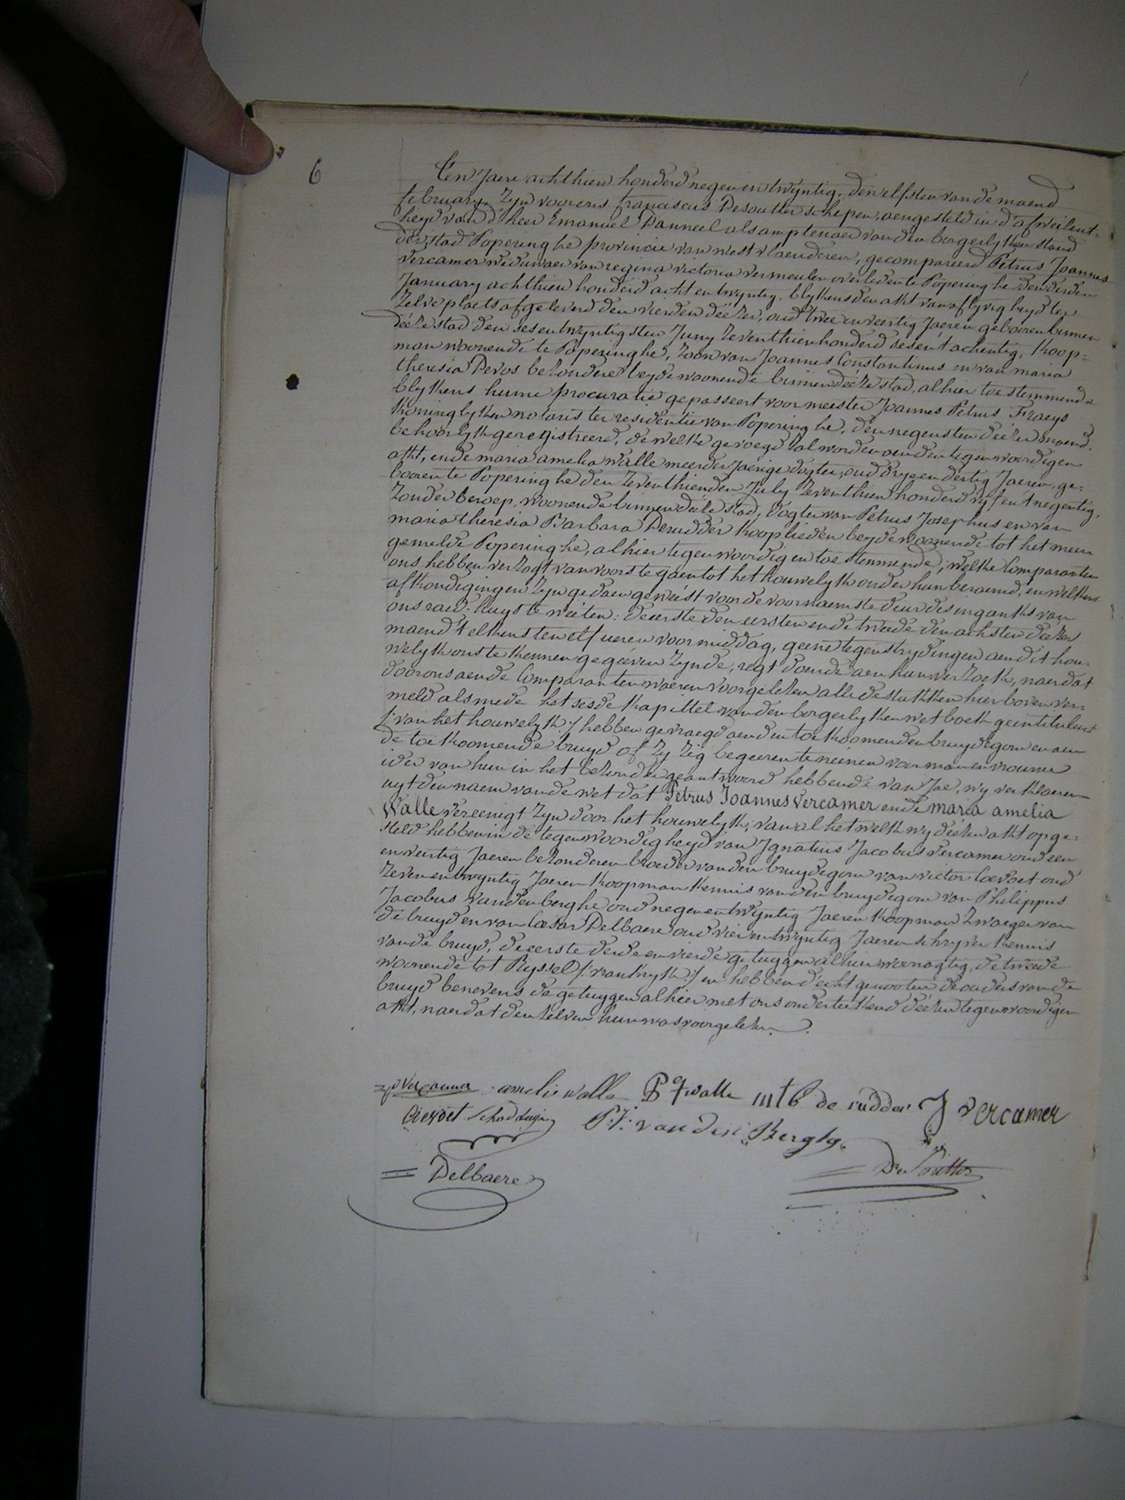 6
Ten Jaere achthien honderd negen en twyntig, den elfsten van de maend
february, Zyn voor ons franciscus Desoutter schepen, aengesteld in d'afweisent-
heyd van d'heer Emanuel Panneel als amptenaer van den borgerlyken stand
der stad Poperinghe provincie van west vlaenderen, gecompareerd Petrus Joannes
vercamer weduwaer van regina victoria vermeulen overleden te Poperinghe den derden
January achthien honderd acht en twyntig, blykens den akt van aflyvigheyd ter
Zelve plaets afgeleverd den vierden deézer, oud twee en veertig Jaeren geboren binnen
deéze stad den sesentwyntigsten Juny Zeventhien honderd sesent'achentig, koop-
man woonende te Poperinghe, Zoon van Joannes Constantinus en van maria
theresia Devos bezondere beyde woonende binnen deéze stad, alhier toestemmende
blykens hunne procuratie gepasseert voor meester Joannes Petrus Fraeys
koninglyken notaris ter residentie van Poperinghe, den negensten deézer maend
behoorlyk geregistreerd, de welke gevoegd sal worden aen den tegenwoordigen
akt, ende maria amelia Walle meerderJaerige dogter, oud dryendertig Jaeren, ge-
booren te Poperinghe den Zeventhienden July Zeventhien honderd vyfent'negentig,
Zonder beroep, woonende binnen deéze stad, dogter van Petrus Josephus en van
maria theresia Barbara Derudder kooplieden beyde woonende tot het meer
gemelde Poperinghe, alhier tegenwoordig en toestemmende, welke Comparanten
ons hebben verzogt van voorts te gaen tot het houwelyk onder hun beraemd, en welkers
afkondigingen Zyn gedaen geweest voor de voornaemste deur des inganks van
ons raed-huys te weéten: de eerste den eersten ende tweede den achsten deézer
maend t'elkens ten elf ueren voor middag, geene tegenstrydingen aen dit hou-
welyk ons te kennen gegeéven Zynde, regt doende aen hun verZoek, naer dat
door ons aende Comparanten waeren voorgelezen alle de stukken hier boven ver-
meld als mede het sesde kapittel van den borgerlyken wetboek geintituleert
(van het houwelyk) hebben gevraegd aenden toekoomenden bruydegom en aen
de toekoomende bruyd of Zy Zig begeeren te neémen voor man en vrouwe
ider van hun in het bezonder geantwoord hebbende van Jae, wy verklaeren
uyt den naem van de wet dat Petrus Joannes vercamer ende maria amelia
Walle vereenigt Zyn door het houwelyk; van al het welk wy deézen akt opge-
steld hebben in de tegenwoordigheyd van Ignatius Jacobus vercamer oud een
en veertig Jaeren bezonderen broeder van den bruydegom van victor Coevoet oud
Zeven en twyntig Jaeren koopman kennis van den bruydegom van Philippus
Jacobus vandenberghe oud negenentwyntig Jaeren koopman Zwaeger van
de bruyd en van Cesar Delbaere oud vierentwyntig Jaeren schryver kennis
van de bruyd, de eerste derde en vierde getuygen alhier woonagtig, de tweede
woonende tot Ryssel (vrankryk) en hebben d'echtgenooten de ouders van de
bruyd benevens de getuygen alhier met ons onderteekend deézen tegenwoordigen
akt, naer dat den Zelven hun was voorgelezen.
PJ Vercamer amelie walle PJ walle mtb de rudder IJ vercamer
Coevoet P:J: van den Berghe
Delbaere Desoutter